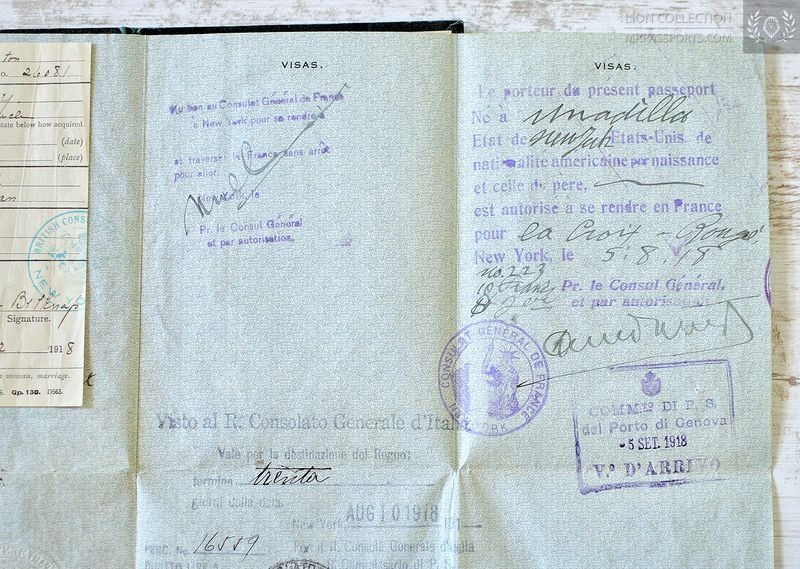 LION COLLECTION
MRPASSPORTS.COM
No. 26081
state below how acquired.
(date)
(place)
BRITISH CONS
NEW
Signature.
1918
woman, marriage.
S. Gp. 130. D563.
VISAS.
Vu bon au Consulat Général de France
à New York pour se rendre à
et traverser la France sans arrêt
pour aller
New York, le
Pr. le Consul Général
et par autorisation,
Visto al R. Consolato Generale d'Italia
Vale per la destinazione del Regno:
termine trenta
giorni dalla data.
New York AUG 10 1918 191
PERC. No. 16559
Per il R. Console Generale d'Italia
Il Commissario di P. S.
VISAS.
Le porteur du present passeport
Né à Unadilla
Etat de Etats-Unis, de
nationalite américaine par naissance
et celle du pere,
est autorisé à se rendre en France
pour la Croix-Rouge,
New York, le 5.8.18
no. 223
10 francs
Pr. le Consul Général,
et par autorisation.
CONSULAT GÉNÉRAL DE FRANCE
NEW YORK
COMM.to DI P. S.
del Porto di Genova
-5 SET. 1918
V.o D'ARRIVO